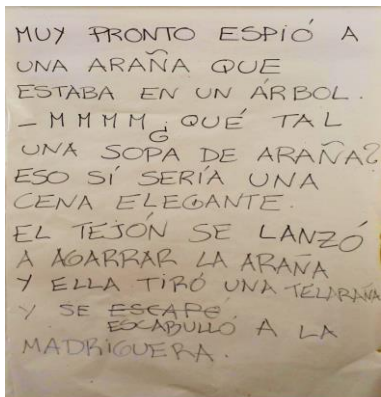 MUY PRONTO ESPIÓ A
UNA ARAÑA QUE
ESTABA EN UN ÁRBOL.
– MMMM ¿QUÉ TAL
UNA SOPA DE ARAÑA?
ESO SÍ SERÍA UNA
CENA ELEGANTE.
EL TEJÓN SE LANZÓ
A AGARRAR LA ARAÑA
Y ELLA TIRÓ UNA TELARAÑA
Y SE ESCAPÓ
ESCABULLÓ A LA
MADRIGUERA.